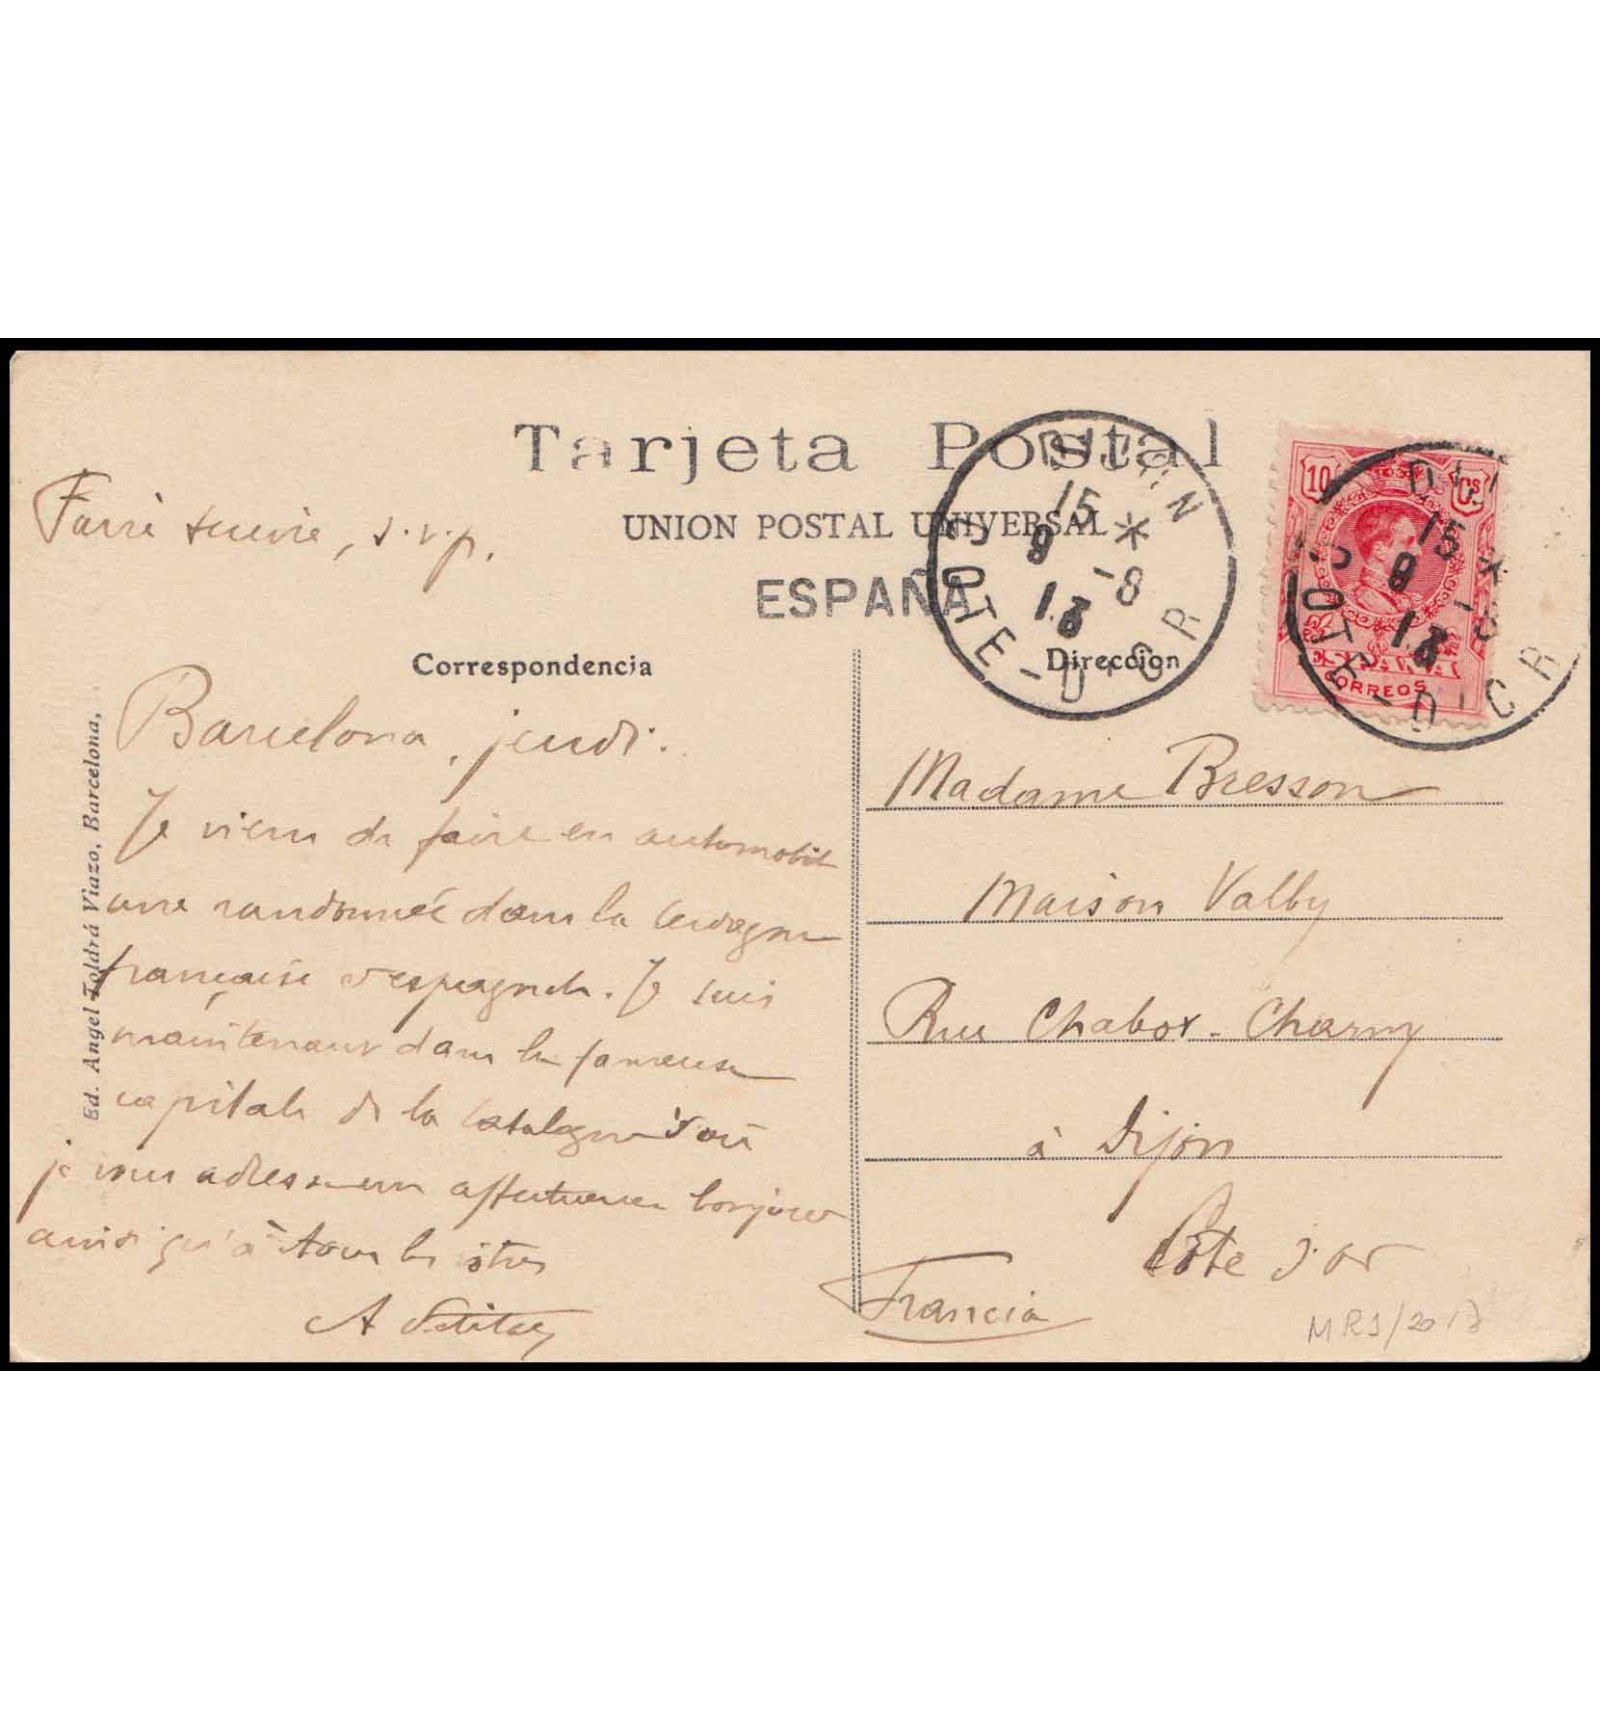 Tarjeta Postal
UNION POSTAL UNIVERSAL
ESPAÑA
Faire suivre, s.v.p.
DIJON
15 *
9 -8
13
COTE-D'OR
10 Cs
ESPAÑA
CORREOS
DIJ
15 *
9 -8
13
COTE-D'OR
Correspondencia
Direccion
Ed. Angel Toldrá Viazo, Barcelona,
Barcelona, jeudi.
Je viens de faire en automobile
une randonnée dans la Cerdagne
française et espagnole. Je suis
maintenant dans la fameuse
capitale de la Catalogne d'où
je vous adresse un affectueux bonjour
ainsi qu'à tous les
A
Madame Bresson
Maison Valby
Rue Chabot-Charny
à Dijon
Côte d'or
Francia
MRS/2017